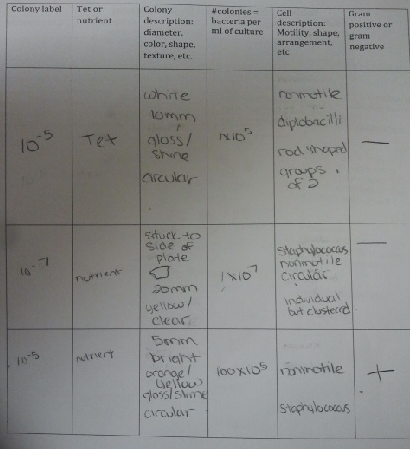 Colony label
Tet or
nutrient
Colony
description:
diameter,
color, shape,
texture, etc.
#colonies =
bacteria per
ml of culture
Cell
description:
Motility, shape,
arrangement,
etc
Gram
positive or
gram
negative
10-5
Tet
white
10mm
gloss/
shine
circular
1x105
nonmotile
diplobacilli
rod shaped
groups
of 2
—
10-7
nutrient
stuck to
side of
plate
20mm
yellow/
clear
1x107
staphylococcus
nonmotile
circular
individual
but clustered
—
10-5
nutrient
5mm
bright
orange/
yellow
gloss/shine
circular
100x105
nonmotile
staphylococcus
+